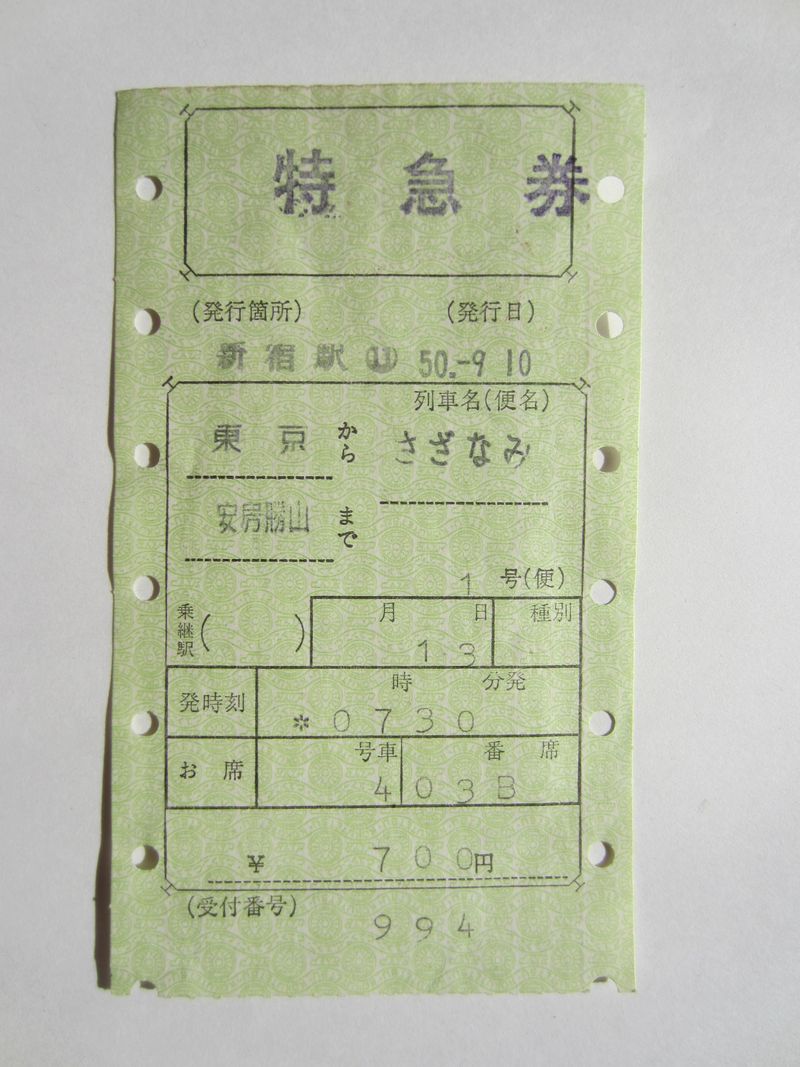 特急券
(発行箇所) (発行日)
新宿駅⑬ 50.-9 10
列車名(便名)
東京から さざなみ
安房勝山まで
1号(便)
乗継駅( ) 月 日 種別
13
発時刻 時 分発
*0730
お席 号車 番 席
4 03B
¥ 700円
(受付番号)
994